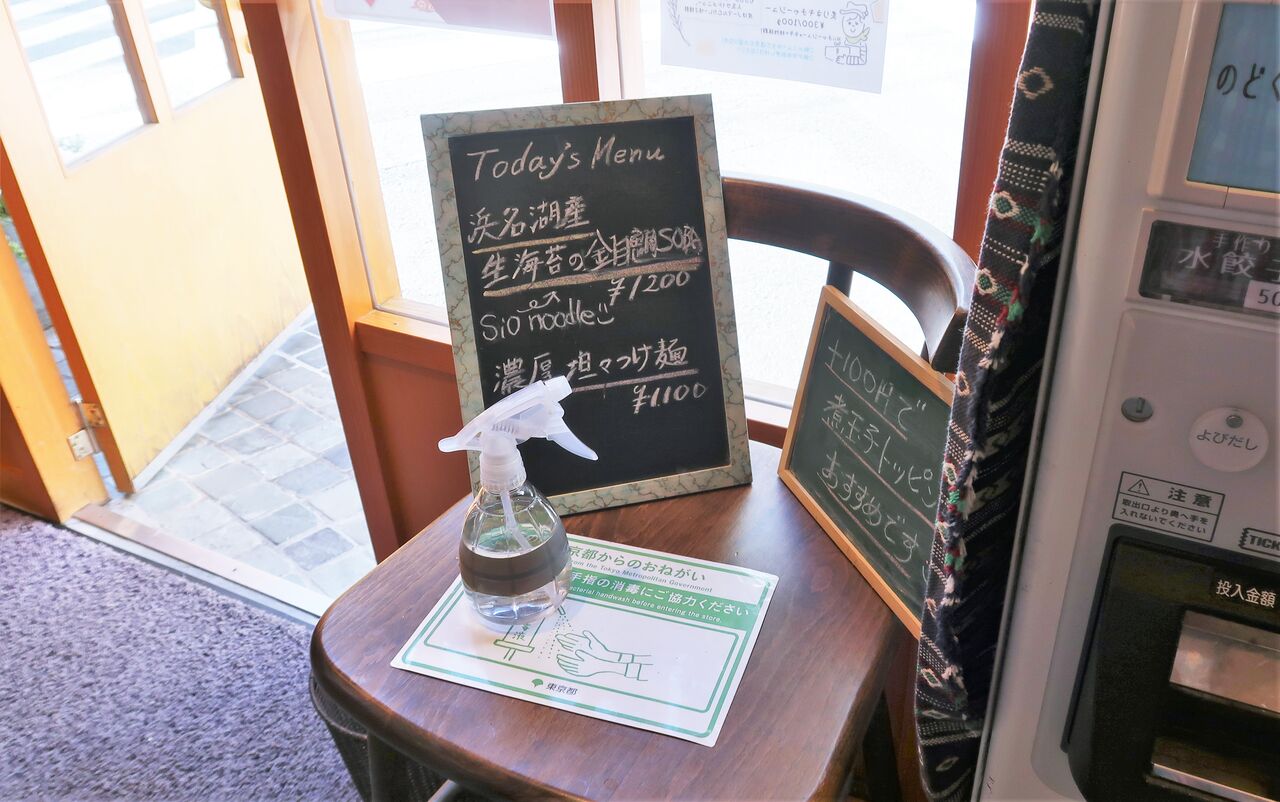 Today's Menu
浜名湖産
生海苔の金目鯛SOBA
¥1200
Sio noodle
濃厚 坦々つけ麺
¥1.100
+100円で
煮玉子トッピン
おすすめです
京都からのおねがい
from the Tokyo Metropolitan Government
手指の消毒にご協力ください
handwash before entering the store.
東京都
¥300/100g
のどぐ
手作り
水餃子
50
よびだし
注意
取出口より奥へ手を
入れないでください
TICK
投入金額